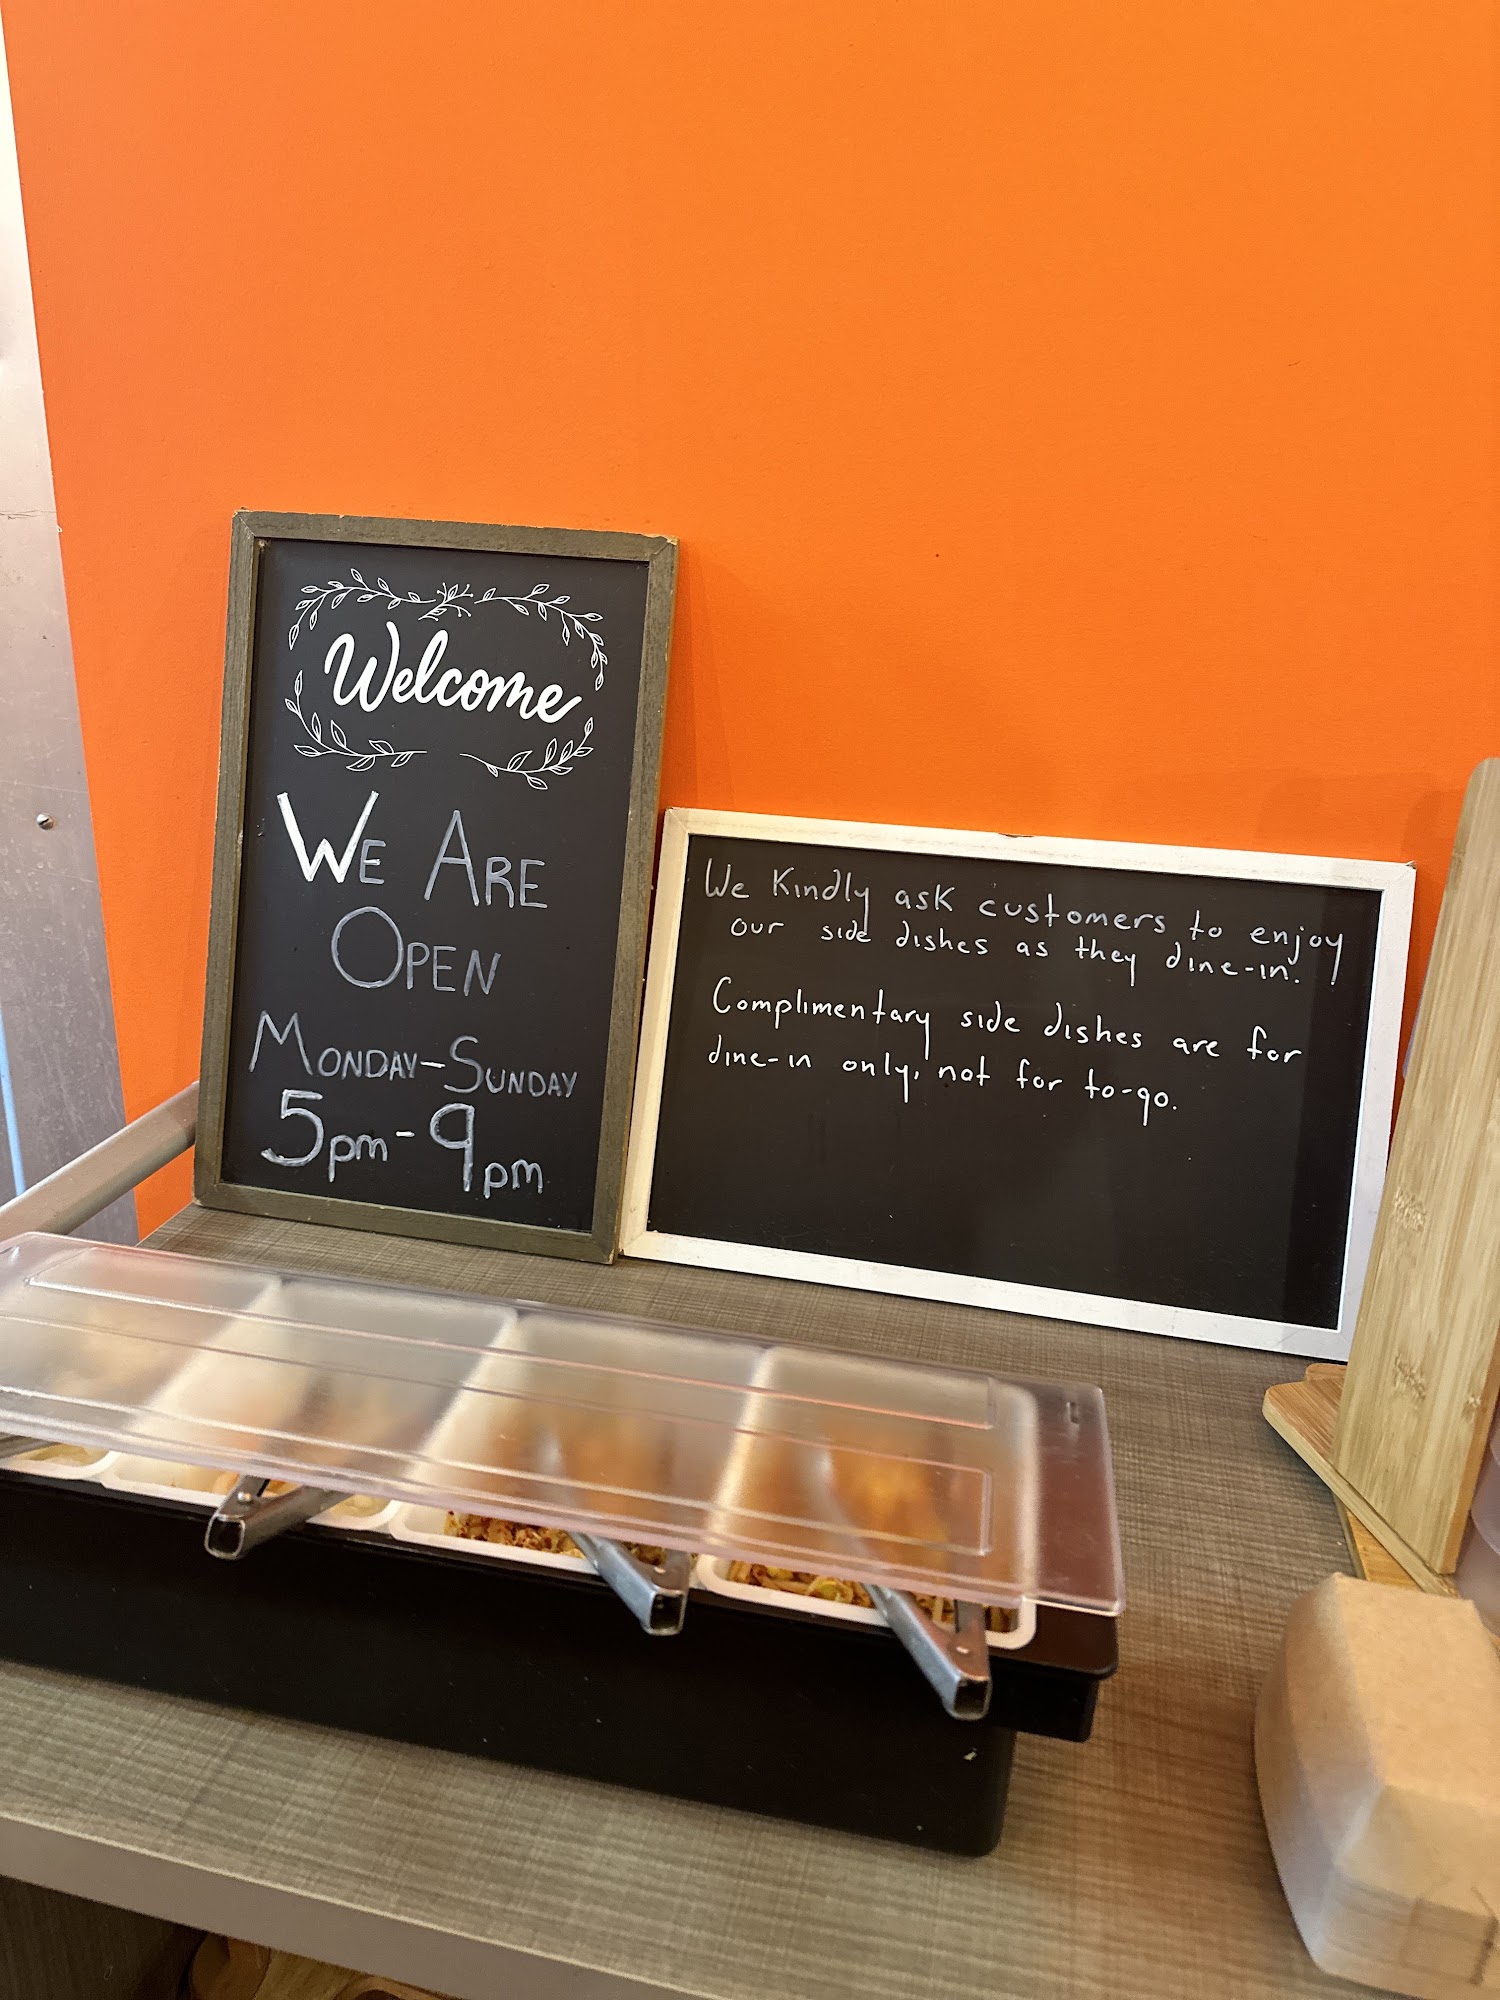 Welcome
WE ARE
OPEN
MONDAY-SUNDAY
5pm-9pm
We Kindly ask customers to enjoy
our side dishes as they dine-in.
Complimentary side dishes are for
dine-in only, not for to-go.